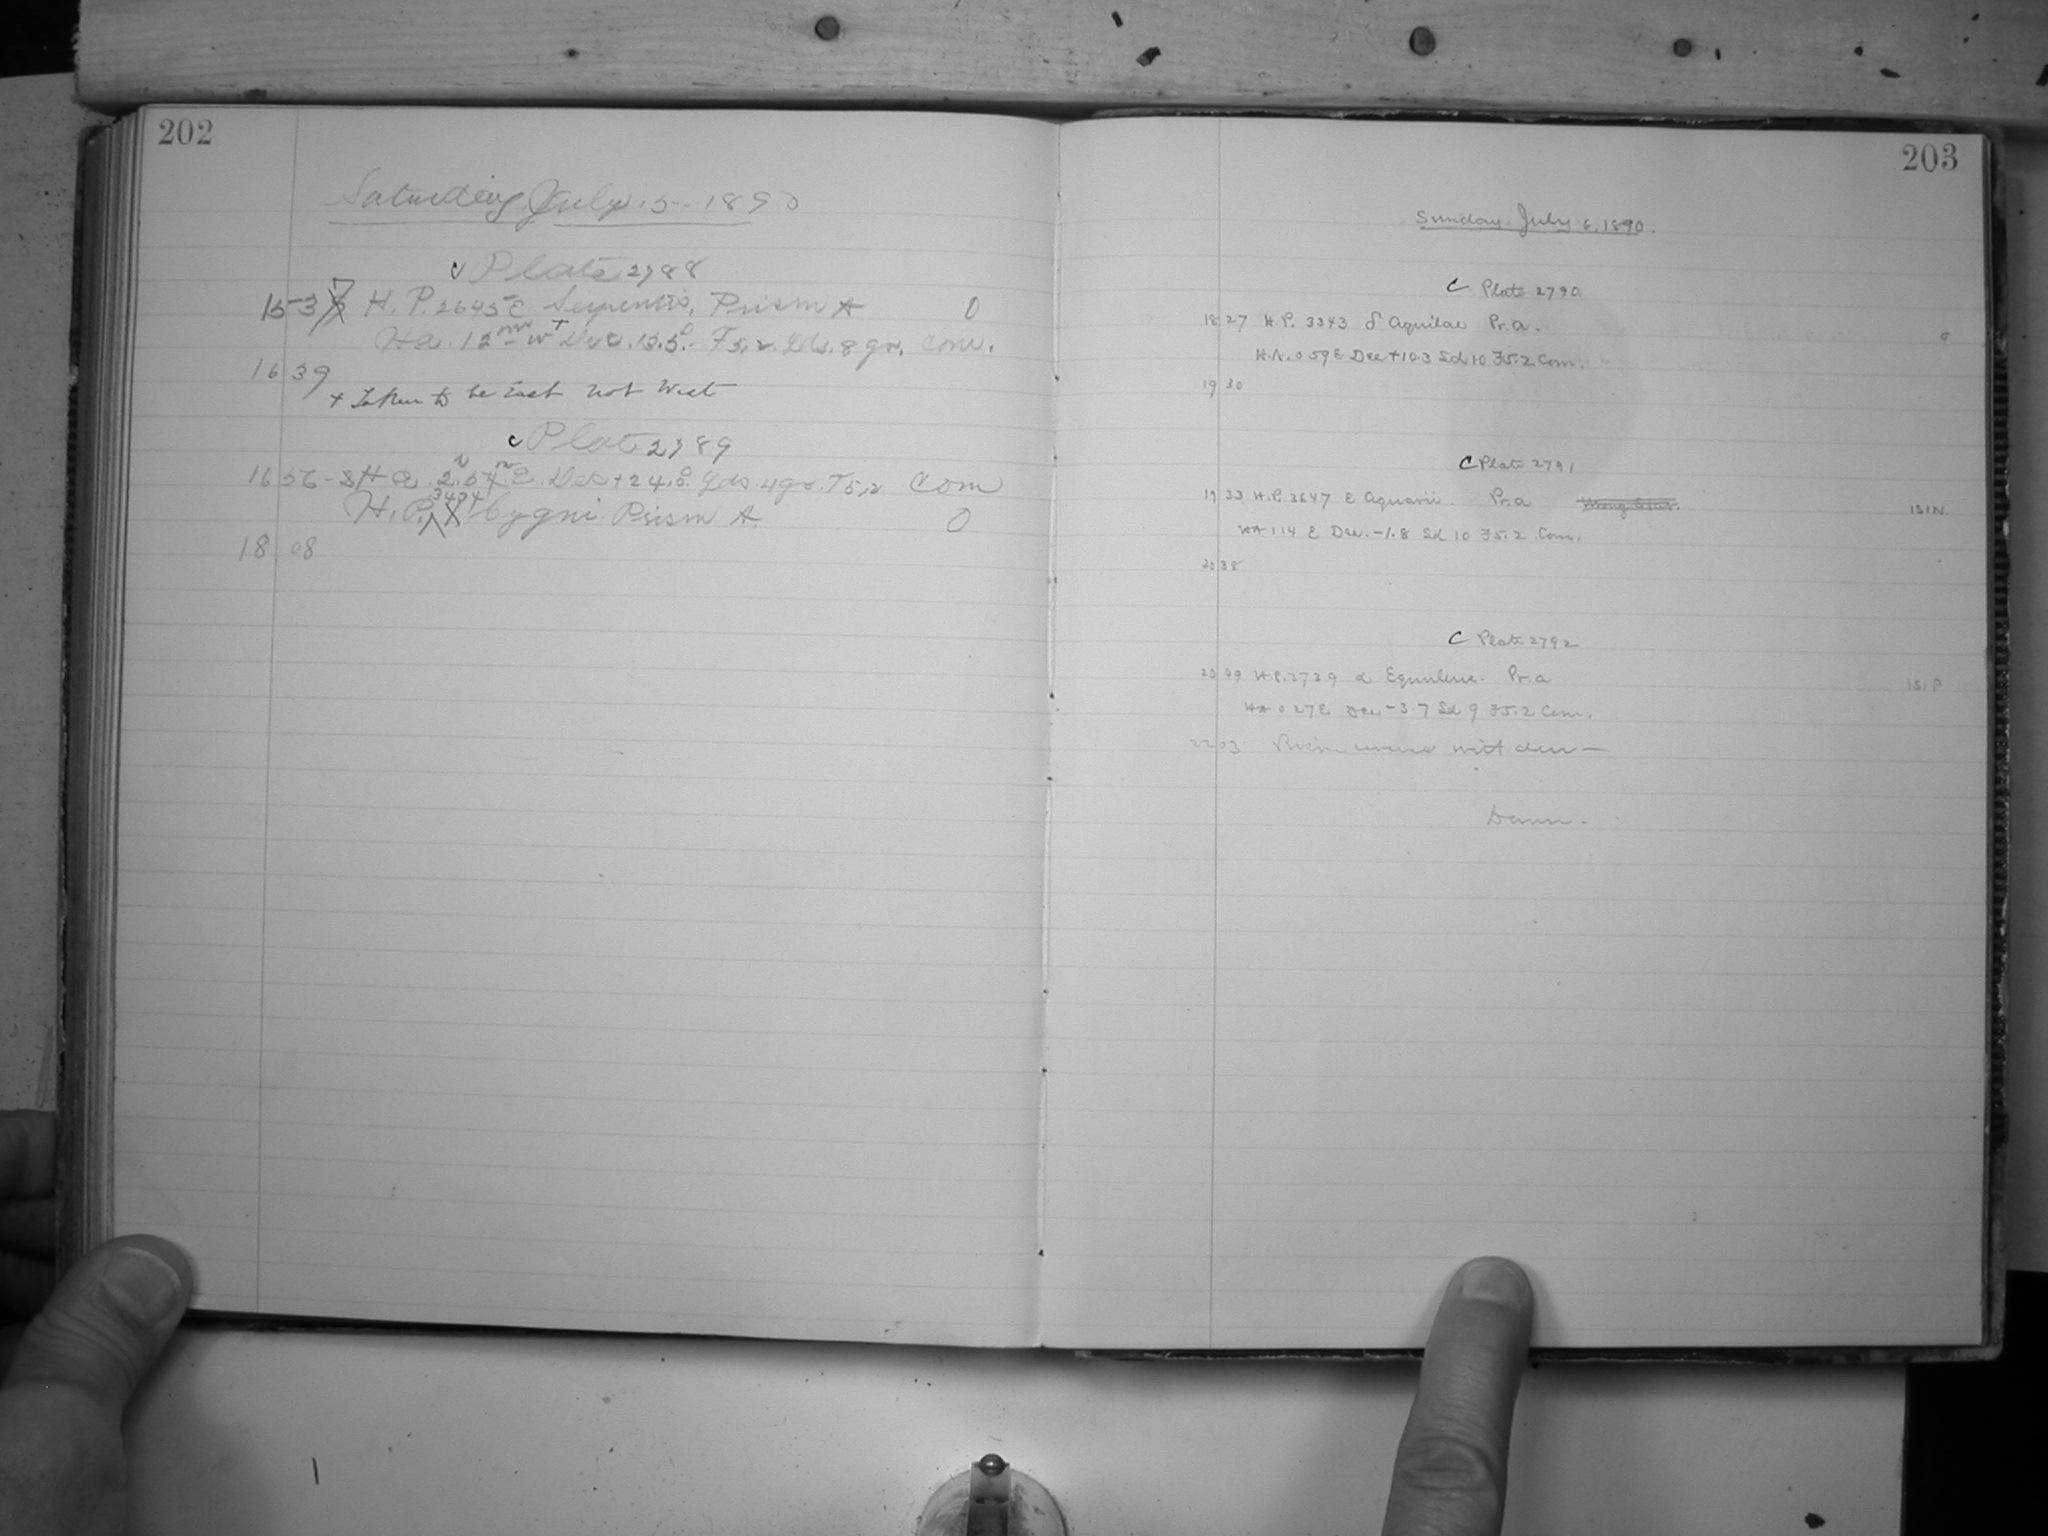 202
Saturday, July 5 - 1890
C Plate 2788
15-37 H. P. 2645 ε Serpentis, Prism A 0
Ha. 12m W + Dec. 15.5° F5.2 Sds. 8 gr. Com.
16 39
+ Taken to be East not West
C Plate 2789
16 56-8 Ha. 2h 54m E. Dec + 24.0° Sds. 4 gr. F5.2 Com
H. P. 3434 Cygni Prism A. 0
18 08
203
Sunday July 6, 1890.
C Plate 2790
18 27 H.P. 3343 δ Aquilae Pr. a. 0
H.A. 0 59 E Dec +10.3 Sd 10 F5.2 Com.
19 30
C Plate 2791
19 33 H.P. 3647 ε Aquarii. Pr. a Wrong Star. ISIN.
HA 1 14 E Dec. -1.8 Sd 10 F5.2 Com.
20 38
C Plate 2792
20 49 H.P. 3739 α Equuleus. Pr. a ISIP
HA 0 27 E Dec -3.7 Sd 9 F5.2 Com.
22 03 with dew —